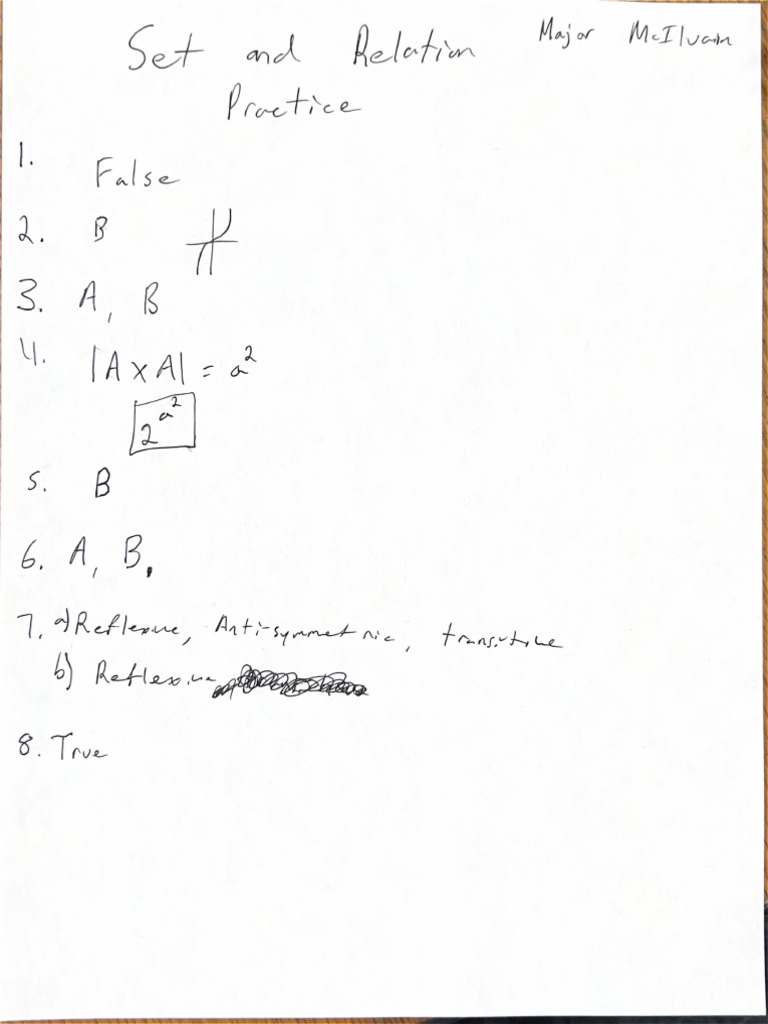 Set and Relation Major McIlvain
Practice
1. False
2. B
3. A, B
4. |A x A| = a²
2^a²
5. B
6. A, B.
7. a) Reflexive, Anti-symmetric, transitive
b) Reflexive
8. True